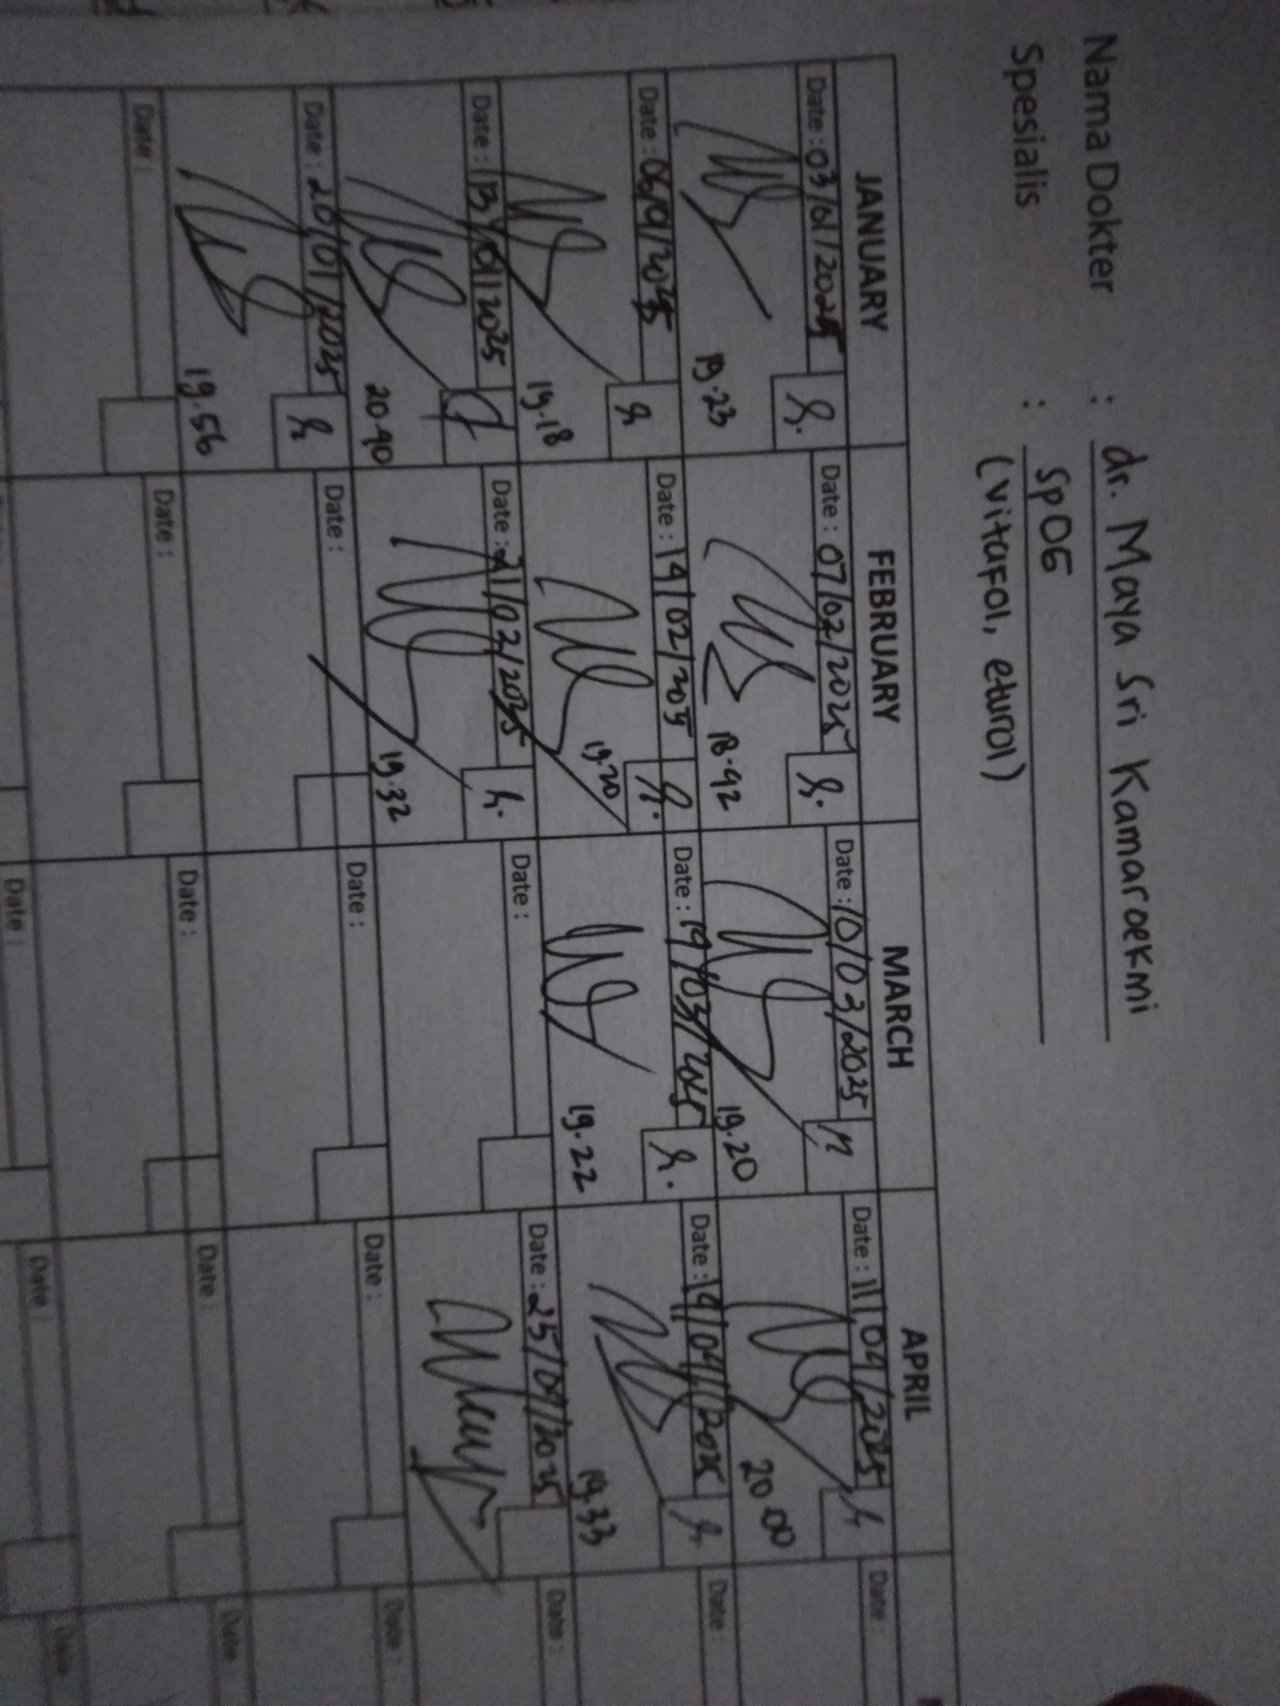 Nama Dokter : dr. Maya Sri Kamaroekmi
Spesialis : SpOG
(vitafol, eturol)
JANUARY FEBRUARY MARCH APRIL
Date : 03/01/2025 Date : 07/02/2025 Date : 10/03/2025 Date : 11/04/2025 Date :
19.23 18.42 19.20 20.00
Date : 06/01/2025 Date : 14/02/2025 Date : 19/03/2025 Date : 14/04/2025 Date :
19.18 19.20 19.22 19.33
Date : 13/01/2025 Date : 21/02/2025 Date : Date : 25/04/2025 Date :
20.40 19.32
Date : 20/01/2025 Date : Date : Date : Date :
19.56
Date : Date : Date : Date : Date
Date : Date : Date